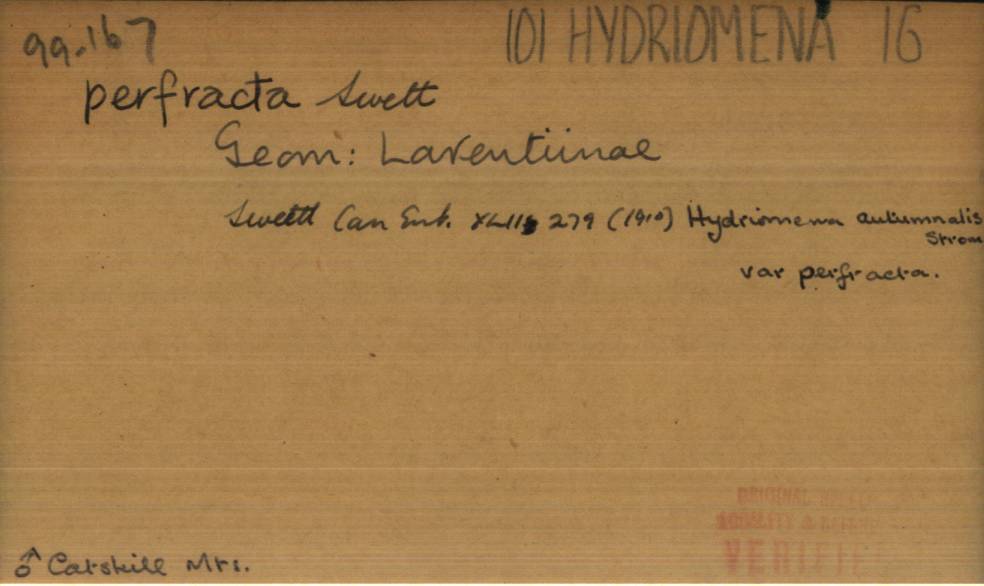 99.167
101 HYDRIOMENA 16
perfracta Swett
Geom: Larentiinae
Swett Can Ent. XLII 279 (1910) Hydriomena autumnalis
Strom
var perfracta.
ORIGINAL
LOCALITY &
VERIFIE
♂ Catskill Mts.